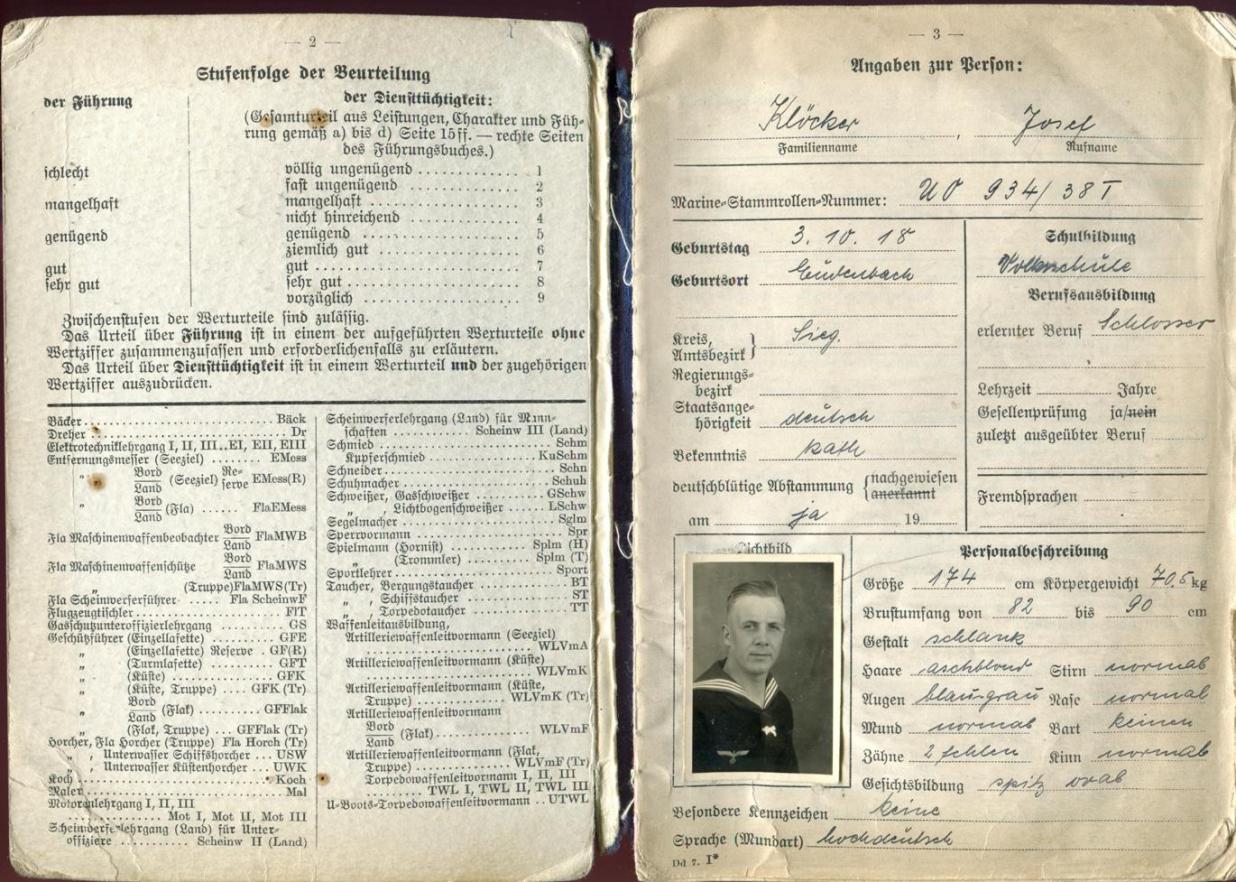 — 2 —
Stufenfolge der Beurteilung
der Führung
der Diensttüchtigkeit:
(Gesamturteil aus Leistungen, Charakter und Füh-
rung gemäß a) bis d) Seite 15 ff. — rechte Seiten
des Führungsbuches.)
schlecht völlig ungenügend ............ 1
fast ungenügend ............ 2
mangelhaft mangelhaft ............ 3
nicht hinreichend ............ 4
genügend genügend ............ 5
ziemlich gut ............ 6
gut gut ............ 7
sehr gut sehr gut ............ 8
vorzüglich ............ 9
Zwischenstufen der Werturteile sind zulässig.
Das Urteil über Führung ist in einem der aufgeführten Werturteile ohne
Wertziffer zusammenzufassen und erforderlichenfalls zu erläutern.
Das Urteil über Diensttüchtigkeit ist in einem Werturteil und der zugehörigen
Wertziffer auszudrücken.
Bäcker ............ Bäck
Dreher ............ Dr
Elektrotechniklehrgang I, II, III .. EI, EII, EIII
Entfernungsmesser (Seeziel) ....... EMess
" Bord/Land (Seeziel) Re-serve EMess(R)
" Bord/Land (Fla) ...... FlaEMess
Fla Maschinenwaffenbeobachter Bord/Land FlaMWB
Fla Maschinenwaffenschütze Bord/Land FlaMWS
" (Truppe) FlaMWS(Tr)
Fla Scheinwerferführer ..... Fla ScheinwF
Flugzeugtischler ............ FlT
Gasschutzunteroffizierlehrgang ...... GS
Geschützführer (Einzellafette) ...... GFE
" (Einzellafette) Reserve . GF(R)
" (Turmlafette) ...... GFT
" (Küste) ............ GFK
" (Küste, Truppe) .... GFK (Tr)
" Bord/Land (Flak) ......... GFFlak
" (Flak, Truppe) ... GFFlak (Tr)
Horcher, Fla Horcher (Truppe) Fla Horch (Tr)
" , Unterwasser Schiffshorcher ... USW
" , Unterwasser Küstenhorcher ... UWK
Koch ............ Koch
Maler ............ Mal
Motorenlehrgang I, II, III
............ Mot I, Mot II, Mot III
Scheinwerferlehrgang (Land) für Unter-
offiziere ........... Scheinw II (Land)
Scheinwerferlehrgang (Land) für Mann-
schaften .......... Scheinw III (Land)
Schmied ............ Schm
Kupferschmied ............ KuSchm
Schneider ............ Schn
Schuhmacher ............ Schuh
Schweißer, Gasschweißer ......... GSchw
" , Lichtbogenschweißer .. LSchw
Segelmacher ............ Sglm
Sperrvormann ............ Spr
Spielmann (Hornist) ............ Splm (H)
(Trommler) ......... Splm (T)
Sportlehrer ............ Sport
Taucher, Bergungstaucher ............ BT
" , Schiffstaucher ............ ST
" , Torpedotaucher ............ TT
Waffenleitausbildung,
Artilleriewaffenleitvormann (Seeziel)
............ WLVmA
Artilleriewaffenleitvormann (Küste)
............ WLVmK
Artilleriewaffenleitvormann (Küste,
Truppe) ............ WLVmK (Tr)
Artilleriewaffenleitvormann
Bord/Land (Flak) ............ WLVmF
Artilleriewaffenleitvormann (Flak,
Truppe) ............ WLVmF (Tr)
Torpedowaffenleitvormann I, II, III
............ TWL I, TWL II, TWL III
U-Boots-Torpedowaffenleitvormann .. UTWL
— 3 —
Angaben zur Person:
Klöcker , Josef
Familienname Rufname
Marine-Stammrollen-Nummer: UO 934/38 T
Geburtstag 3. 10. 18
Geburtsort Eudenbach
Kreis, Amtsbezirk } Sieg.
Regierungs-
bezirk
Staatsange-
hörigkeit deutsch
Bekenntnis kath
deutschblütige Abstammung { nachgewiesen
anerkannt
am ja 19
Schulbildung
Volksschule
Berufsausbildung
erlernter Beruf Schlosser
Lehrzeit Jahre
Gesellenprüfung ja/nein
zuletzt ausgeübter Beruf
Fremdsprachen
Lichtbild
Personalbeschreibung
Größe 174 cm Körpergewicht 70,5 kg
Brustumfang von 82 bis 90 cm
Gestalt schlank
Haare aschblond Stirn normal
Augen blaugrau Nase normal
Mund normal Bart keinen
Zähne 2 fehlen Kinn normal
Gesichtsbildung spitz oval
Besondere Kennzeichen keine
Sprache (Mundart) hochdeutsch
Dd 7. I*